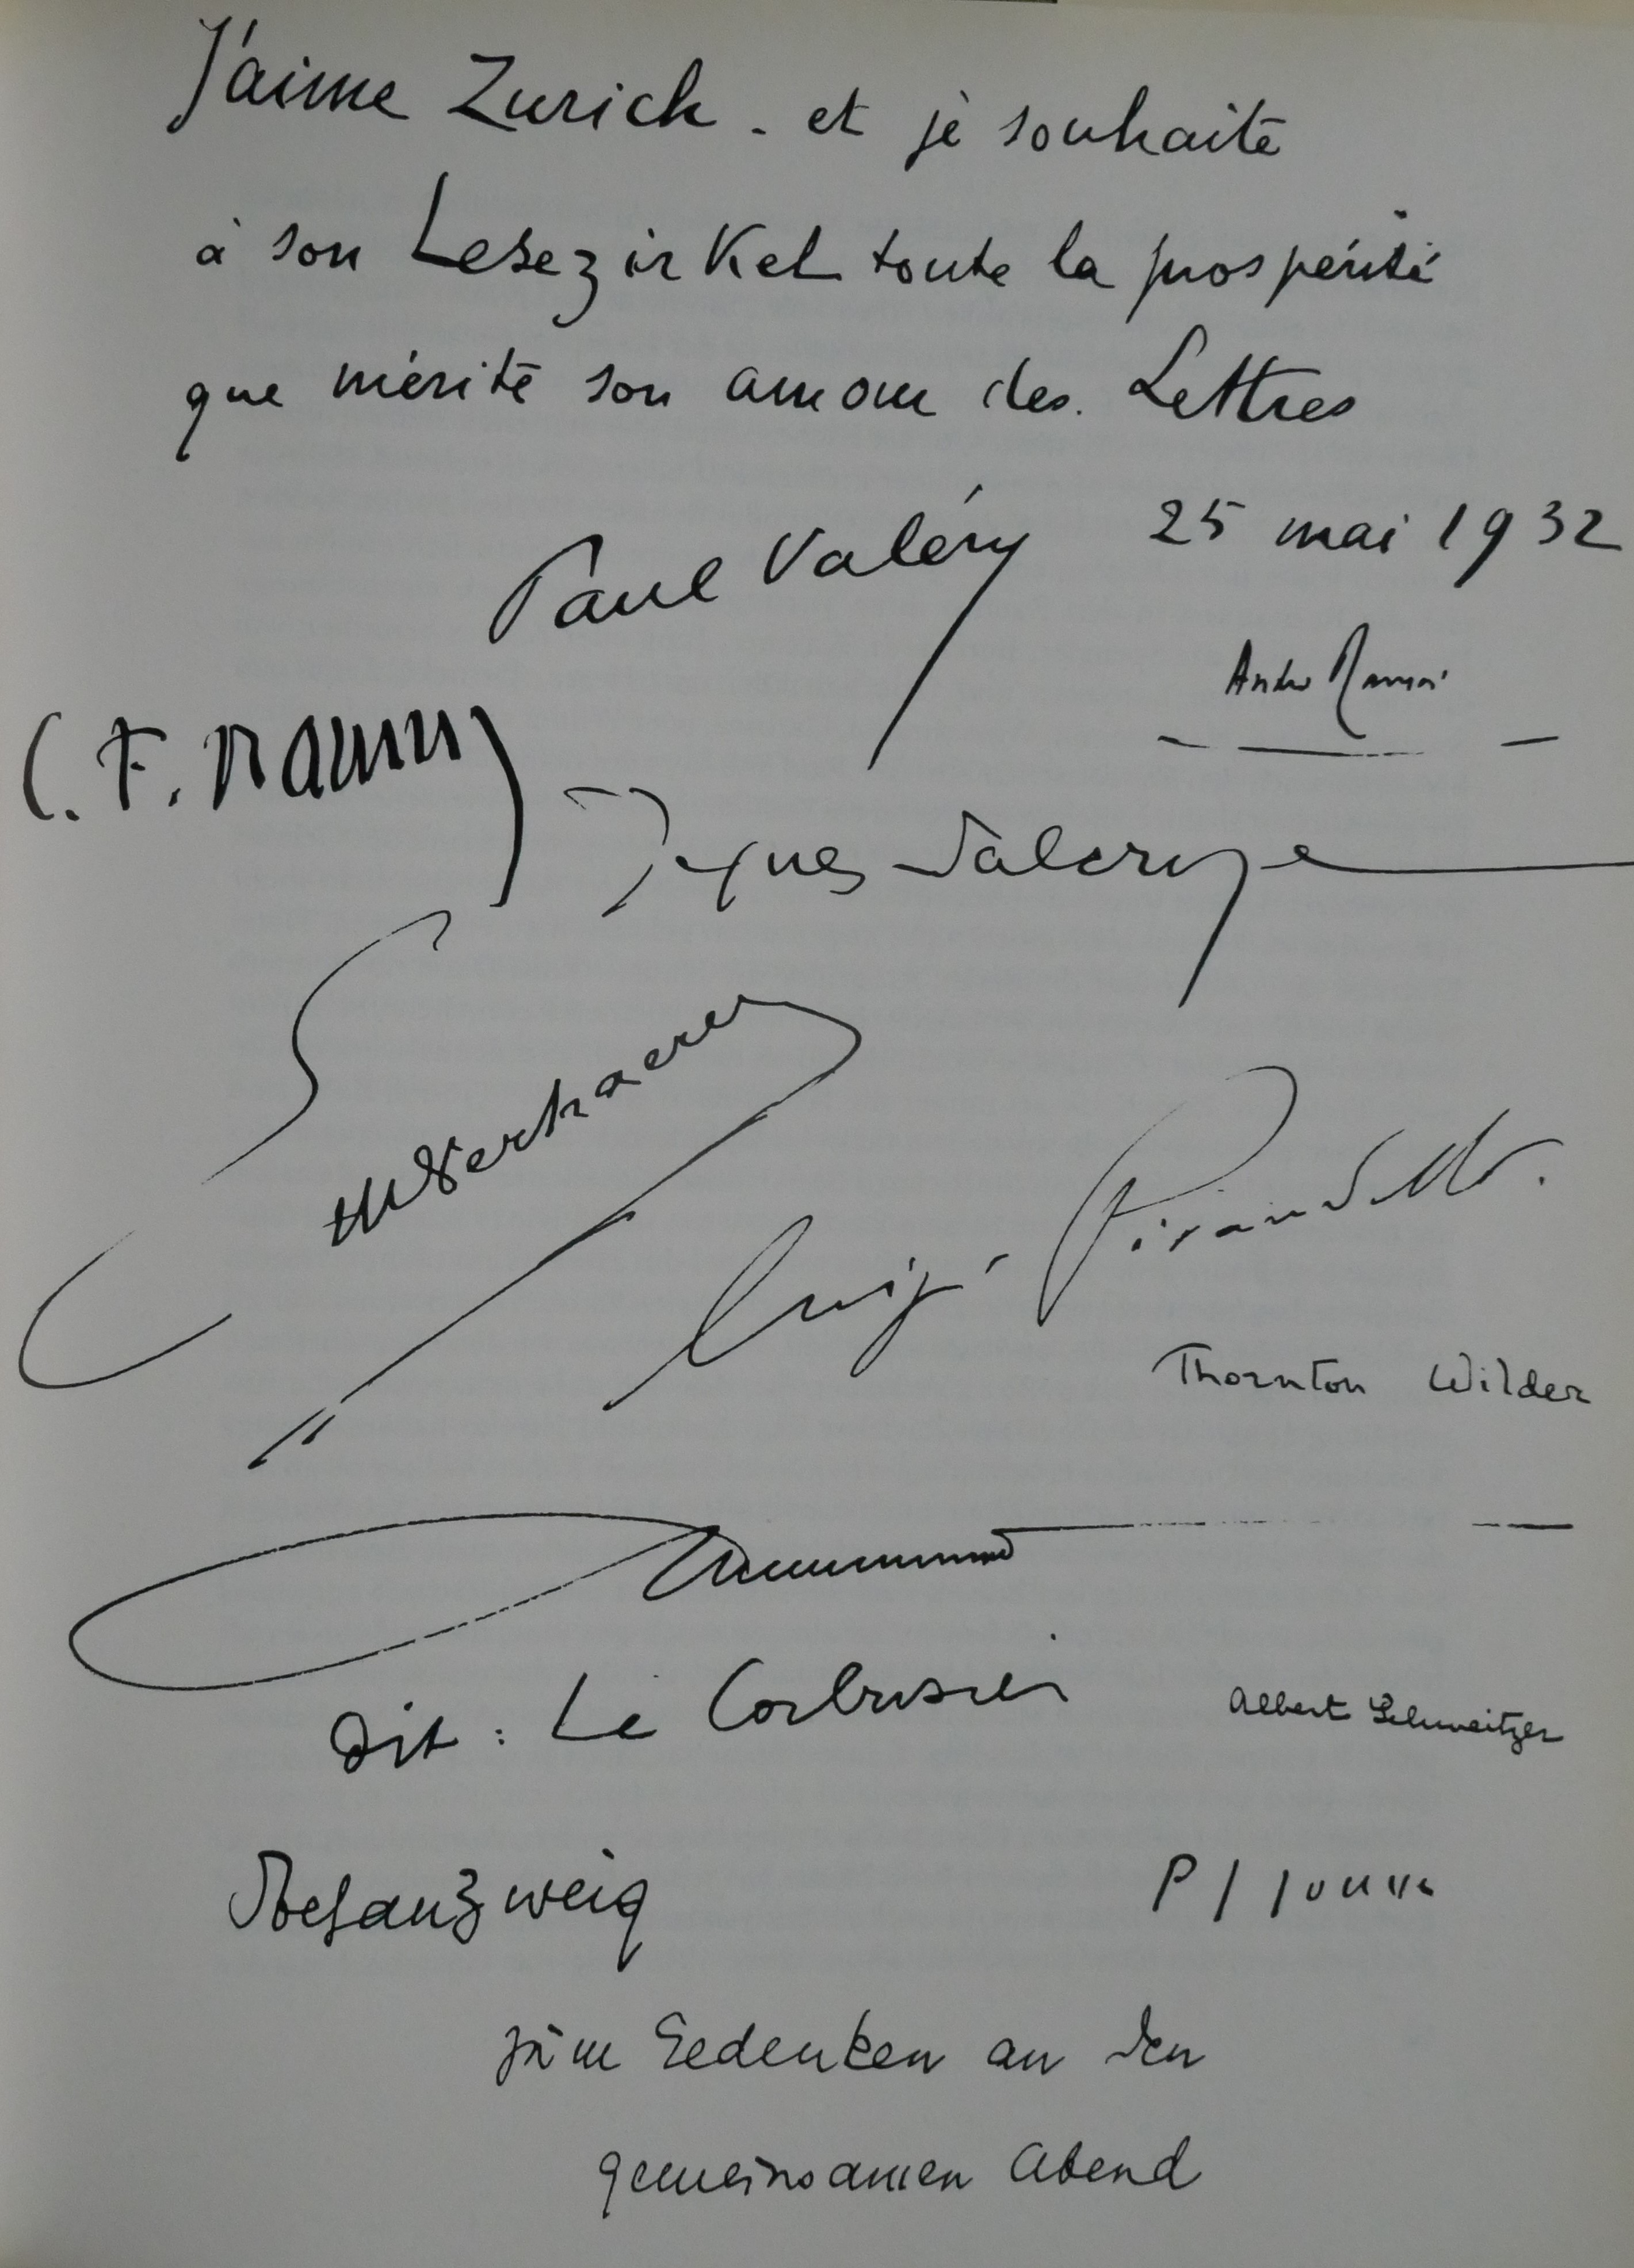 J'aime Zurich - et je souhaite
à son Lesezirkel toute la prospérité
que mérite son amour des Lettres
Paul Valéry 25 mai 1932
André Maurois
C. F. Ramuz
Jaques Dalcroze
Em Verhaeren
Luigi Pirandello.
Thornton Wilder
dit : Le Corbusier
Albert Schweitzer
Stefan Zweig
P J Jouve
zum Gedenken an den
gemeinsamen Abend